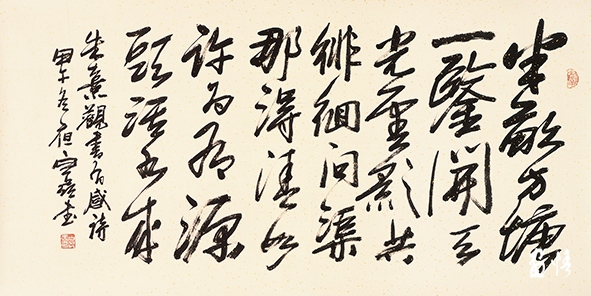 半畝方塘
一鑒開天
光雲影共
徘徊問渠
那得清如
許為有源
頭活水來
朱熹觀書有感詩
甲午冬書